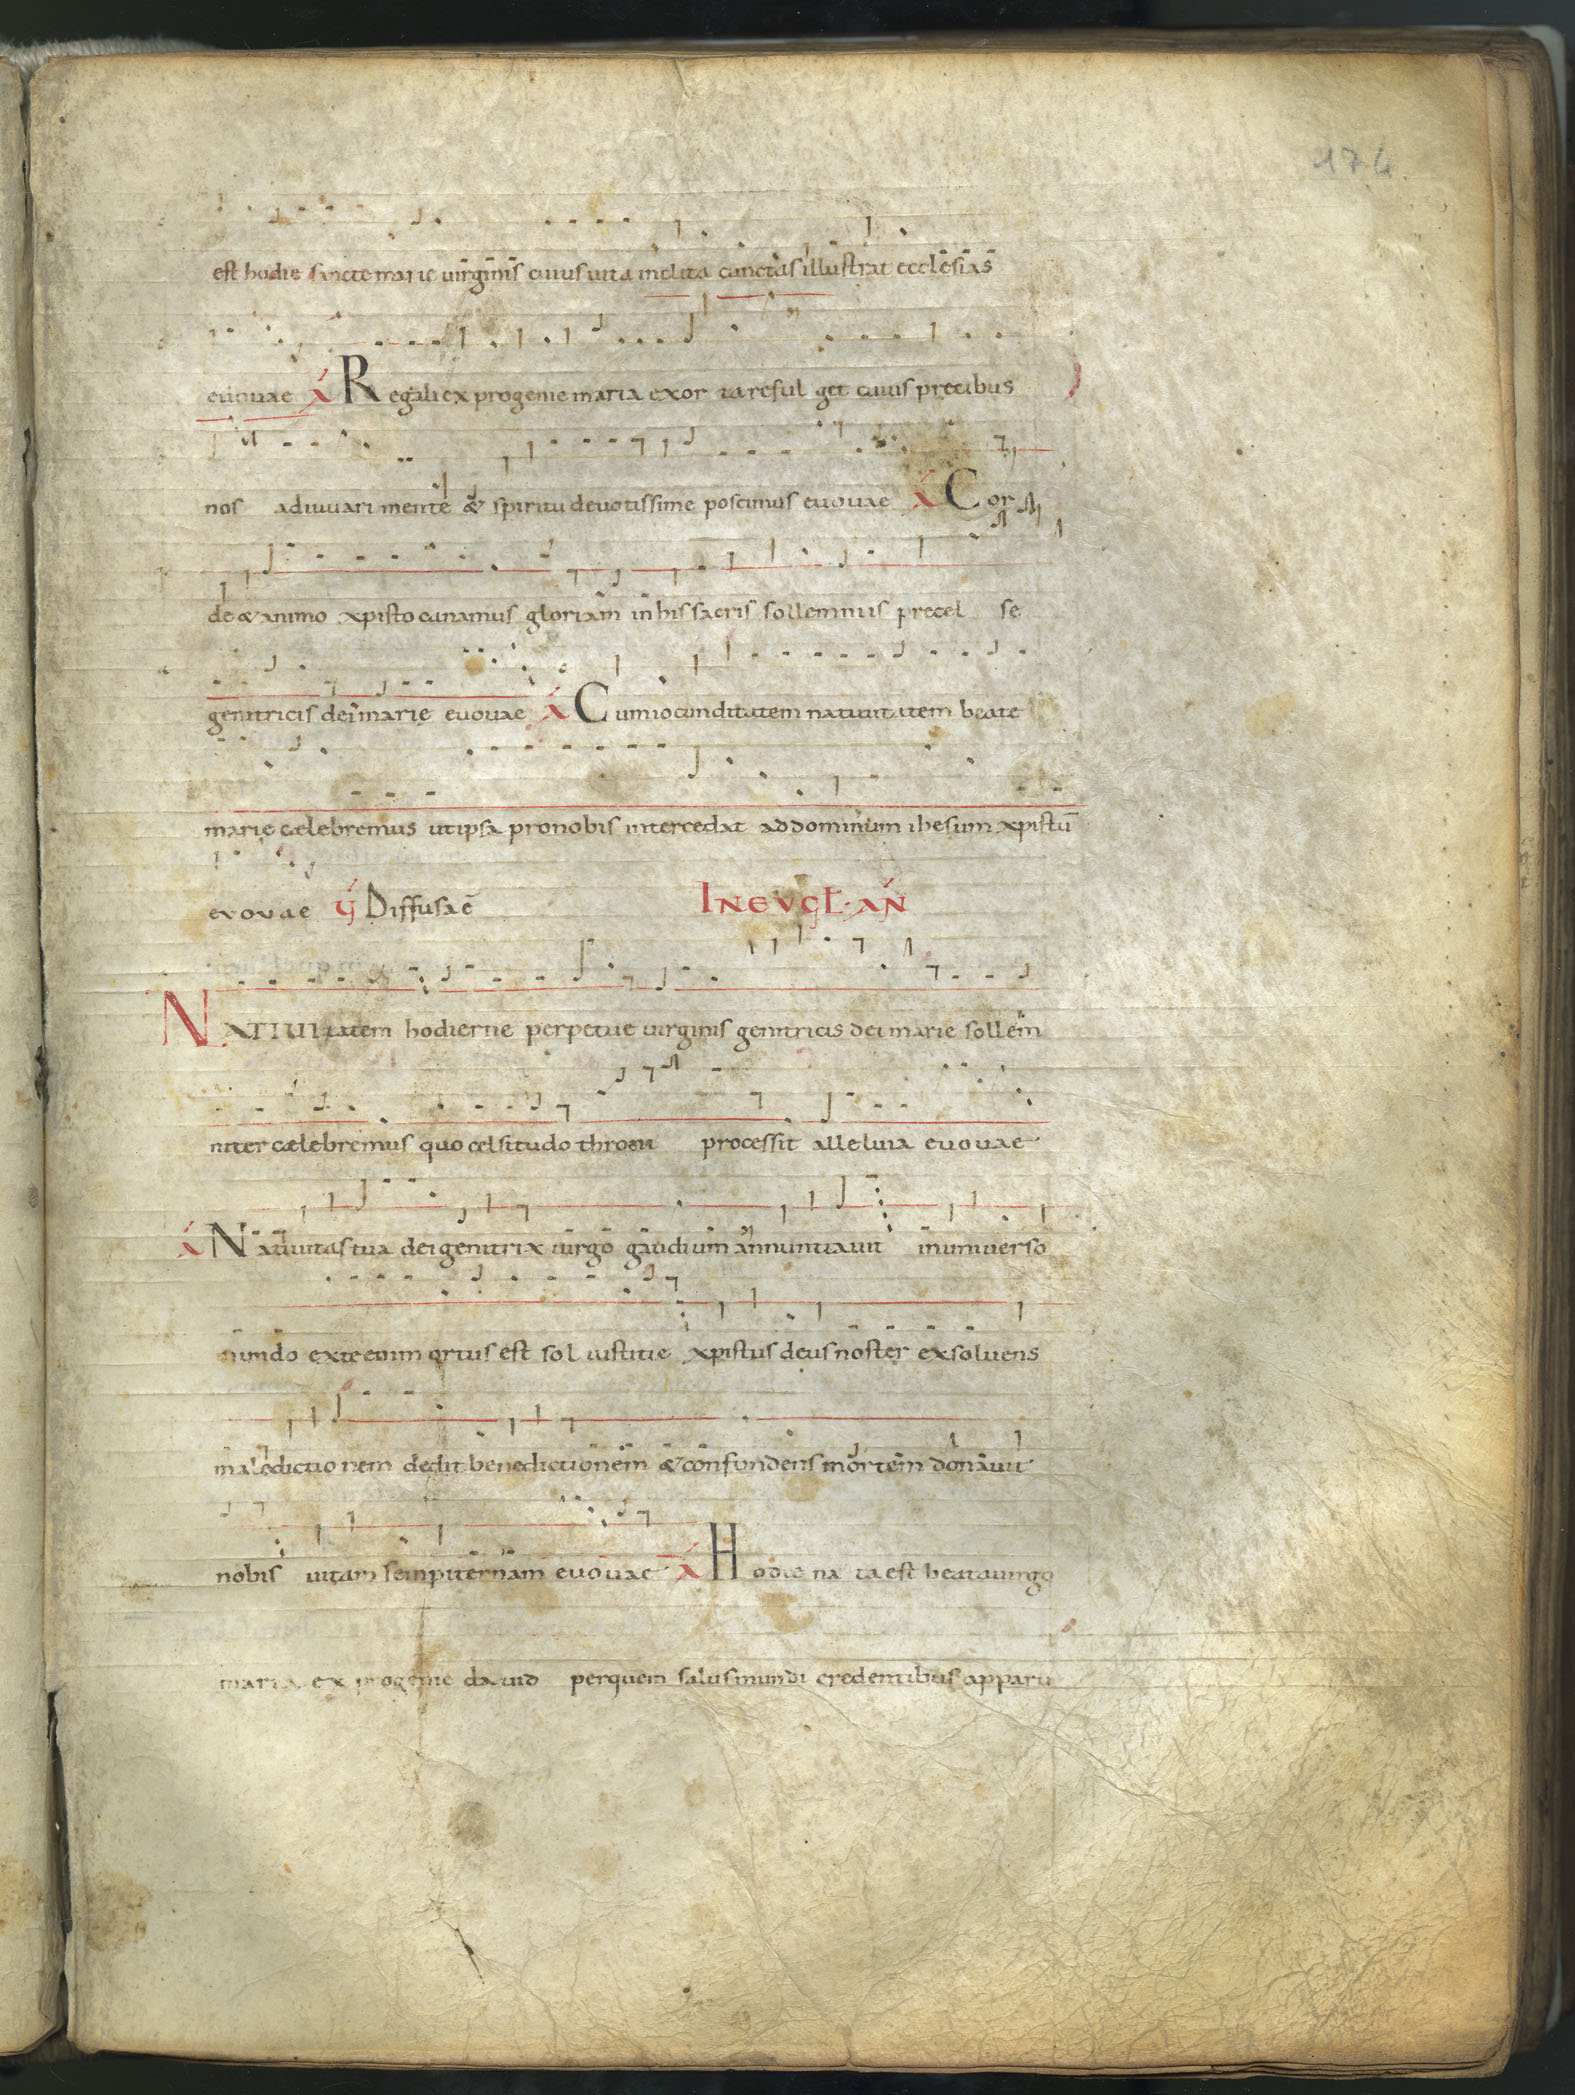 174
est hodie sancte marie virginis cuius vita inclita cunctas illustrat ecclesias
euouae A Regali ex progenie maria exor ta resul get cuius precibus
nos adiuuari mente & spiritu deuotissime poscimus euouae A Cor
de & animo xpisto canamus gloriam in his sacris sollemniis precel se
genitricis dei marie euouae A Cum iocunditatem natiuitatem beate
marie cælebremus ut ipsa pro nobis intercedat ad dominum ihesum xpistū
euouae V Diffusa ē IN EVGL. AN
NATIUItatem hodierne perpetue uirginis genitricis dei marie sollem
niter cælebremus quo celsitudo throni processit alleluia euouae
A Natiuitas tua dei genitrix uirgo gaudium annuntiauit in uniuerso
mundo ex te enim ortus est sol iustitie xpistus deus noster exsoluens
maledictionem dedit benedictionem & confundens mortem donauit
nobis uitam sempiternam euouae A Hodie na ta est beata uirgo
maria ex progenie dauid per quem salus mundi credentibus apparu